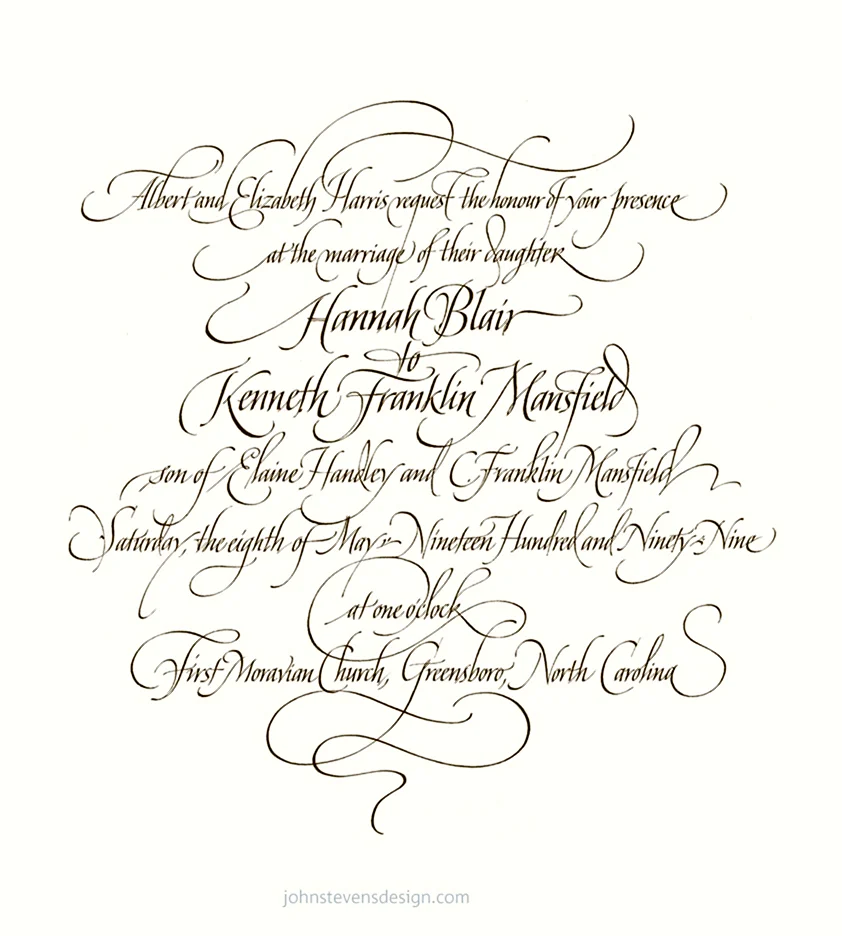 Albert and Elizabeth Harris request the honour of your presence
at the marriage of their daughter
Hannah Blair
to
Kenneth Franklin Mansfield
son of Elaine Handley and C. Franklin Mansfield
Saturday, the eighth of May, Nineteen Hundred and Ninety-Nine
at one o'clock
First Moravian Church, Greensboro, North Carolina
johnstevensdesign.com